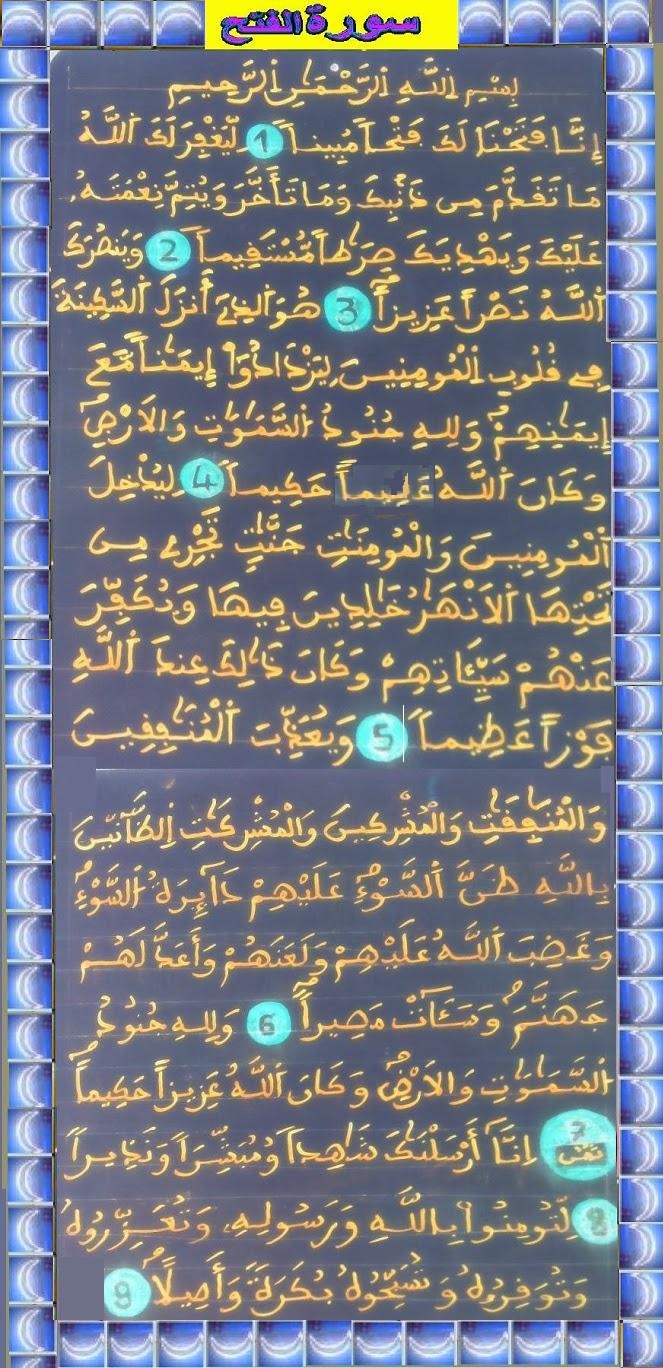 سورة الفتح
بسم الله الرحمن الرحيم
إِنَّا فَتَحْنَا لَكَ فَتْحاً مُّبِيناً 1 لِّيَغْفِرَ لَكَ اَللَّهُ
مَا تَفَدَّمَ مِن ذَنۢبِكَ وَمَا تَأَخَّرَ وَيُتِمَّ نِعْمَتَهُۥ
عَلَيْكَ وَيَهْدِيَكَ صِرَٰطاً مُّسْتَفِيماً 2 وَيَنصُرَكَ
اَللَّهُ نَصْراً عَزِيزاً 3 هُوَ اَلذِےٓ أَنزَلَ اَلسَّكِينَةَ
فِے فُلُوبِ اِلْمُومِنِينَ لِيَزْدَادُوٓاْ إِيمَٰناً مَّعَ
إِيمَٰنِهِمْ وَلِلهِ جُنُودُ اُلسَّمَٰوَٰتِ وَالَارْضِ
وَكَانَ اَللَّهُ عَلِيماً حَكِيماً 4 لِّيُدْخِلَ
اَلْمُومِنِينَ وَالْمُومِنَٰتِ جَنَّٰتٍ تَجْرِے مِن
تَحْتِهَا اَلَانْهَٰرُ خَٰلِدِينَ فِيهَا وَيُكَفِّرَ
عَنْهُمْ سَيِّـَٔاتِهِمْ وَكَانَ ذَٰلِكَ عِندَ اَللَّهِ
فَوْزاً عَظِيماً 5 وَيُعَذِّبَ اَلْمُنَٰفِفِينَ
وَالْمُنَٰفِفَٰتِ وَالْمُشْرِكِينَ وَالْمُشْرِكَٰتِ اِلظَّآنِّينَ
بِاللَّهِ ظَنَّ اَلسَّوْءِ عَلَيْهِمْ دَآئِرَةُ اُلسَّوْءِ
وَغَضِبَ اَللَّهُ عَلَيْهِمْ وَلَعَنَهُمْ وَأَعَدَّ لَهُمْ
جَهَنَّمَ وَسَآءَتْ مَصِيراً 6 وَلِلهِ جُنُودُ
اُلسَّمَٰوَٰتِ وَالَارْضِ وَكَانَ اَللَّهُ عَزِيزاً حَكِيماً
7 ثمن اِنَّآ أَرْسَلْنَٰكَ شَٰهِداً وَمُبَشِّراً وَنَذِيراً
8 لِّتُومِنُواْ بِاللَّهِ وَرَسُولِهِۦ وَتُعَزِّرُوهُ
وَتُوَفِّرُوهُ وَتُسَبِّحُوهُ بُكْرَةً وَأَصِيلاً 9